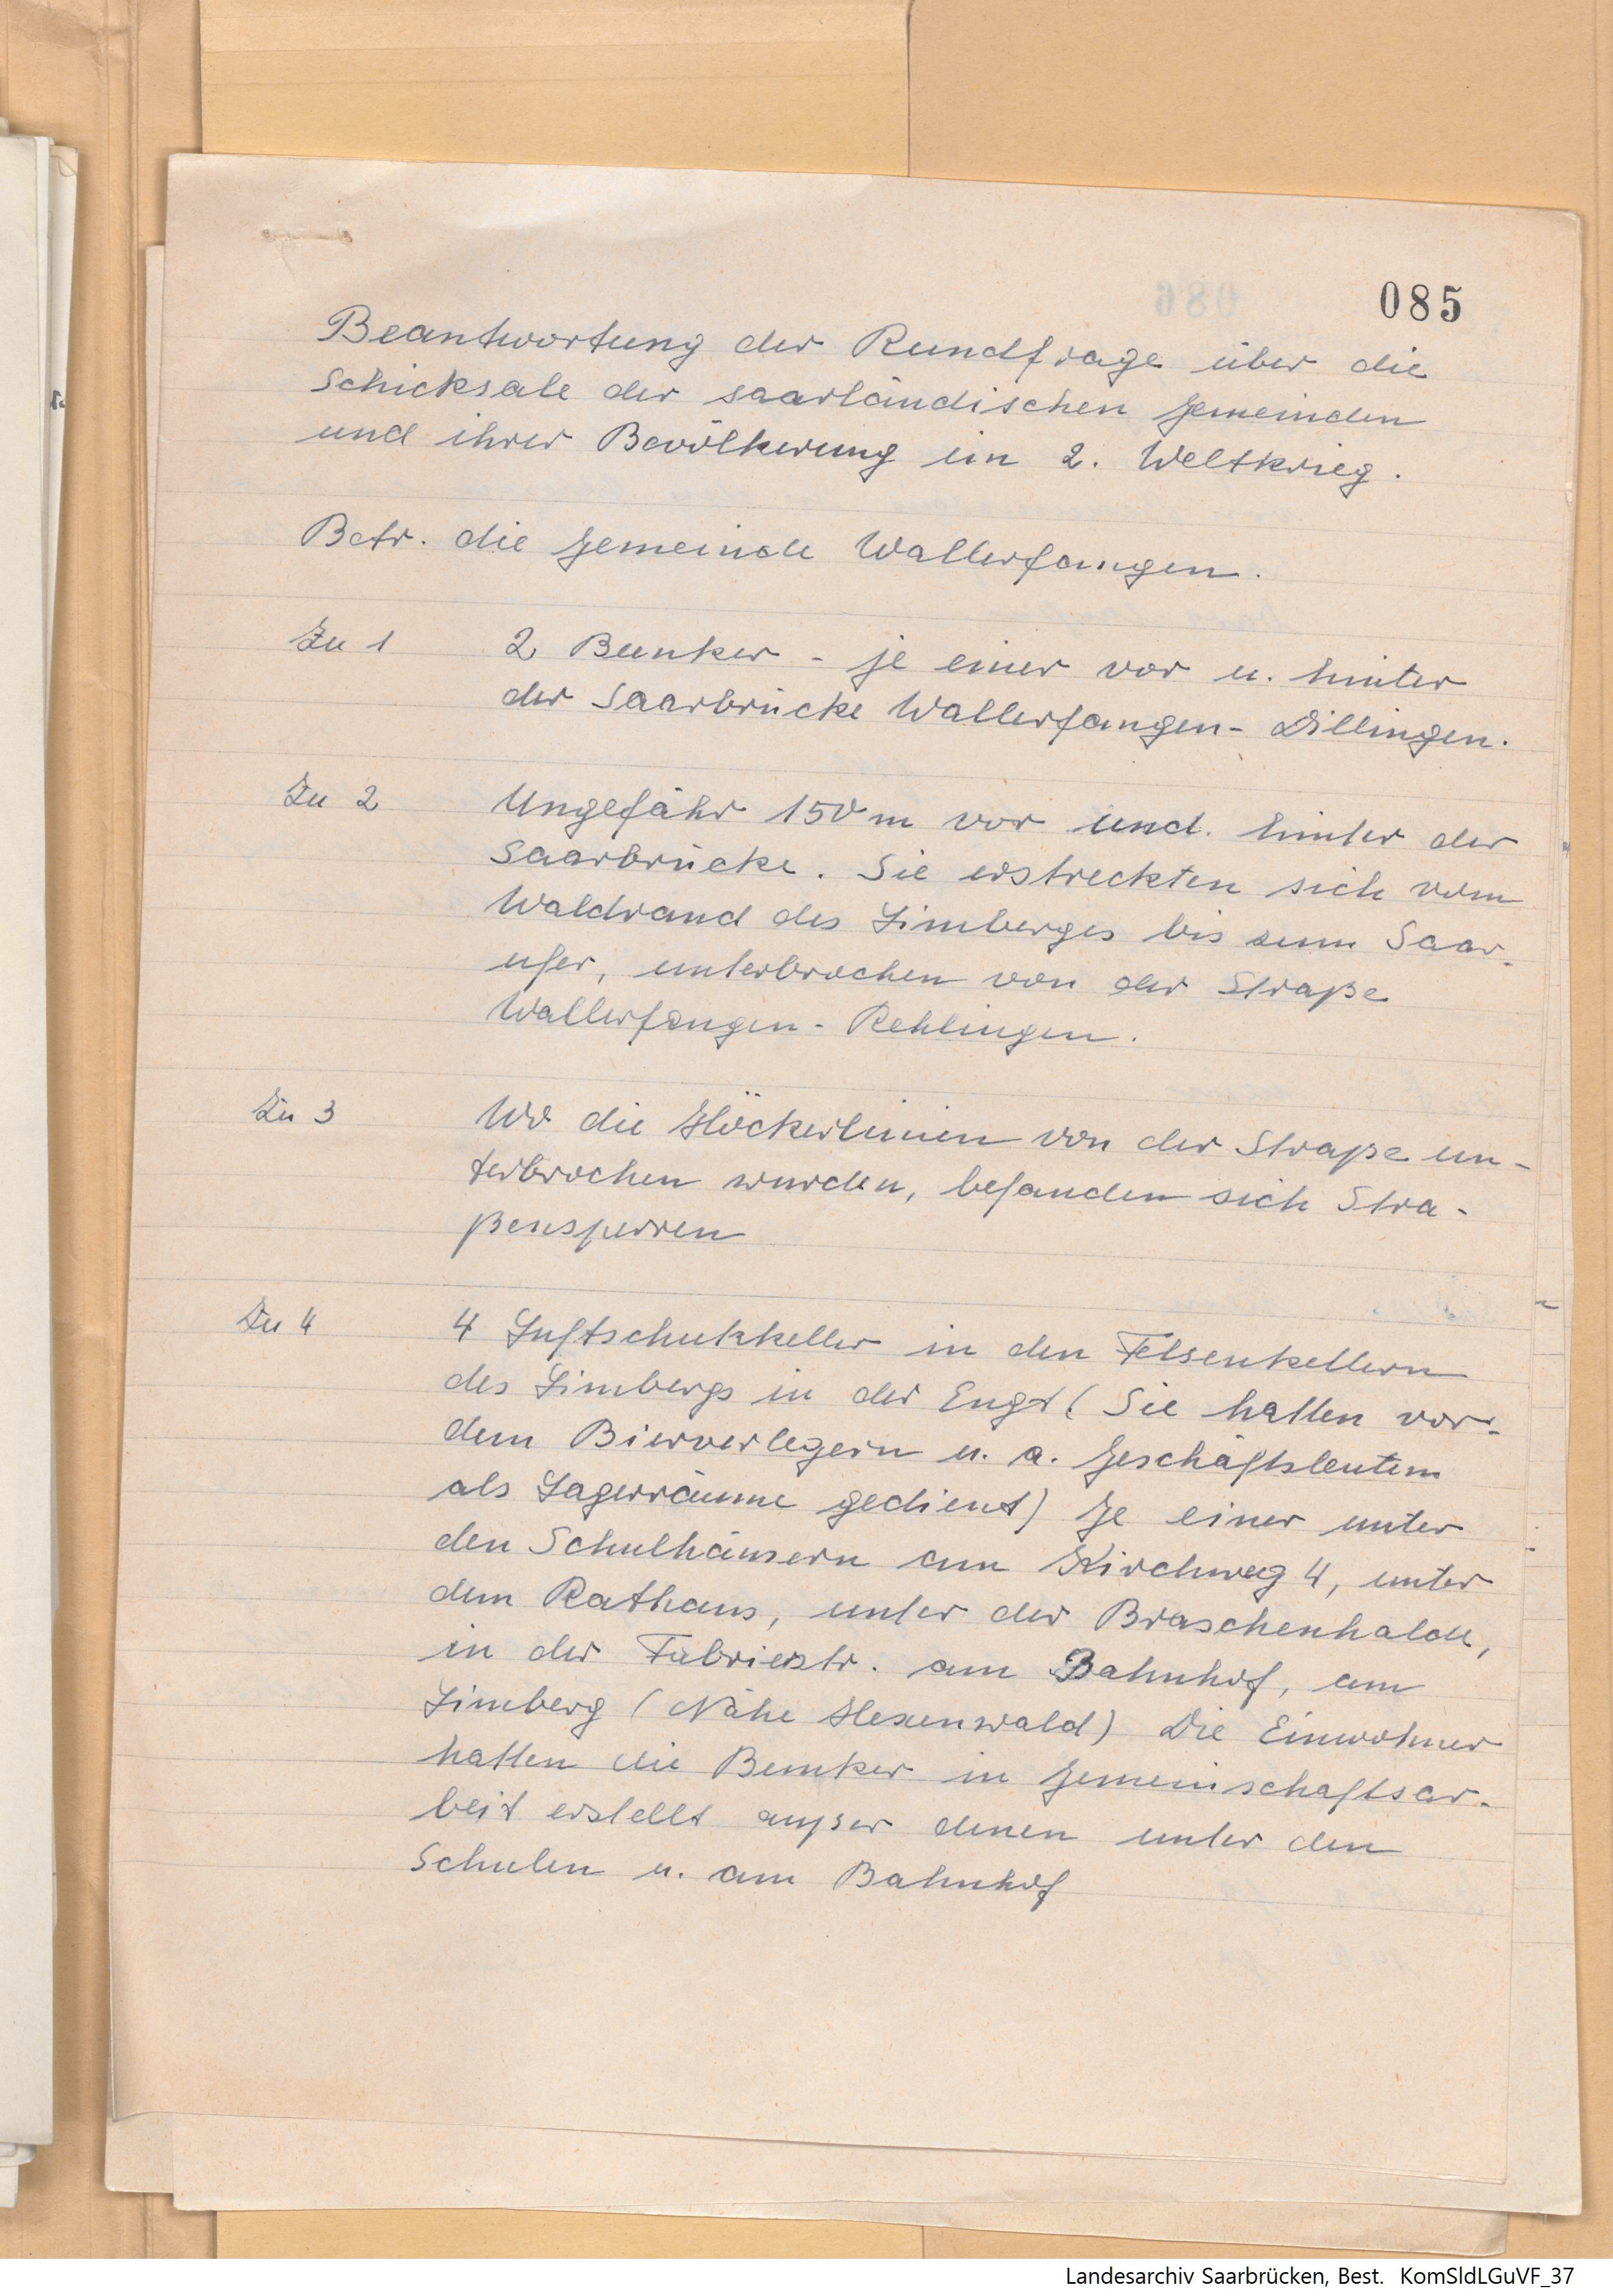 085
Beantwortung der Rundfrage über die
Schicksale der saarländischen Gemeinden
und ihrer Bevölkerung im 2. Weltkrieg.
Betr. die Gemeinde Wallerfangen.
Zu 1 2 Bunker - je einer vor u. hinter
der Saarbrücke Wallerfangen- Dillingen.
Zu 2 Ungefähr 150 m vor und. hinter der
Saarbrücke. Sie erstreckten sich vom
Waldrand des Limberges bis zum Saar-
ufer, unterbrochen von der Straße
Wallerfangen - Rehlingen.
Zu 3 Wo die Höckerlinien von der Straße un-
terbrochen wurden, befanden sich Stra-
ßensperren
Zu 4 4 Luftschutzkeller in den Felsenkellern
des Limbergs in der Engt (Sie hatten vor-
dem Bierverlegern u. a. Geschäftsleuten
als Lagerräume gedient) Je einer unter
den Schulhäusern am Kirchweg 4, unter
dem Rathaus, unter der Braschenhalde,
in der Fabrikstr. am Bahnhof, am
Limberg (Nähe Hexenwald) Die Einwohner
hatten die Bunker in Gemeinschaftsar-
beit erstellt außer denen unter den
Schulen u. am Bahnhof
Landesarchiv Saarbrücken, Best. KomSldLGuVF_37